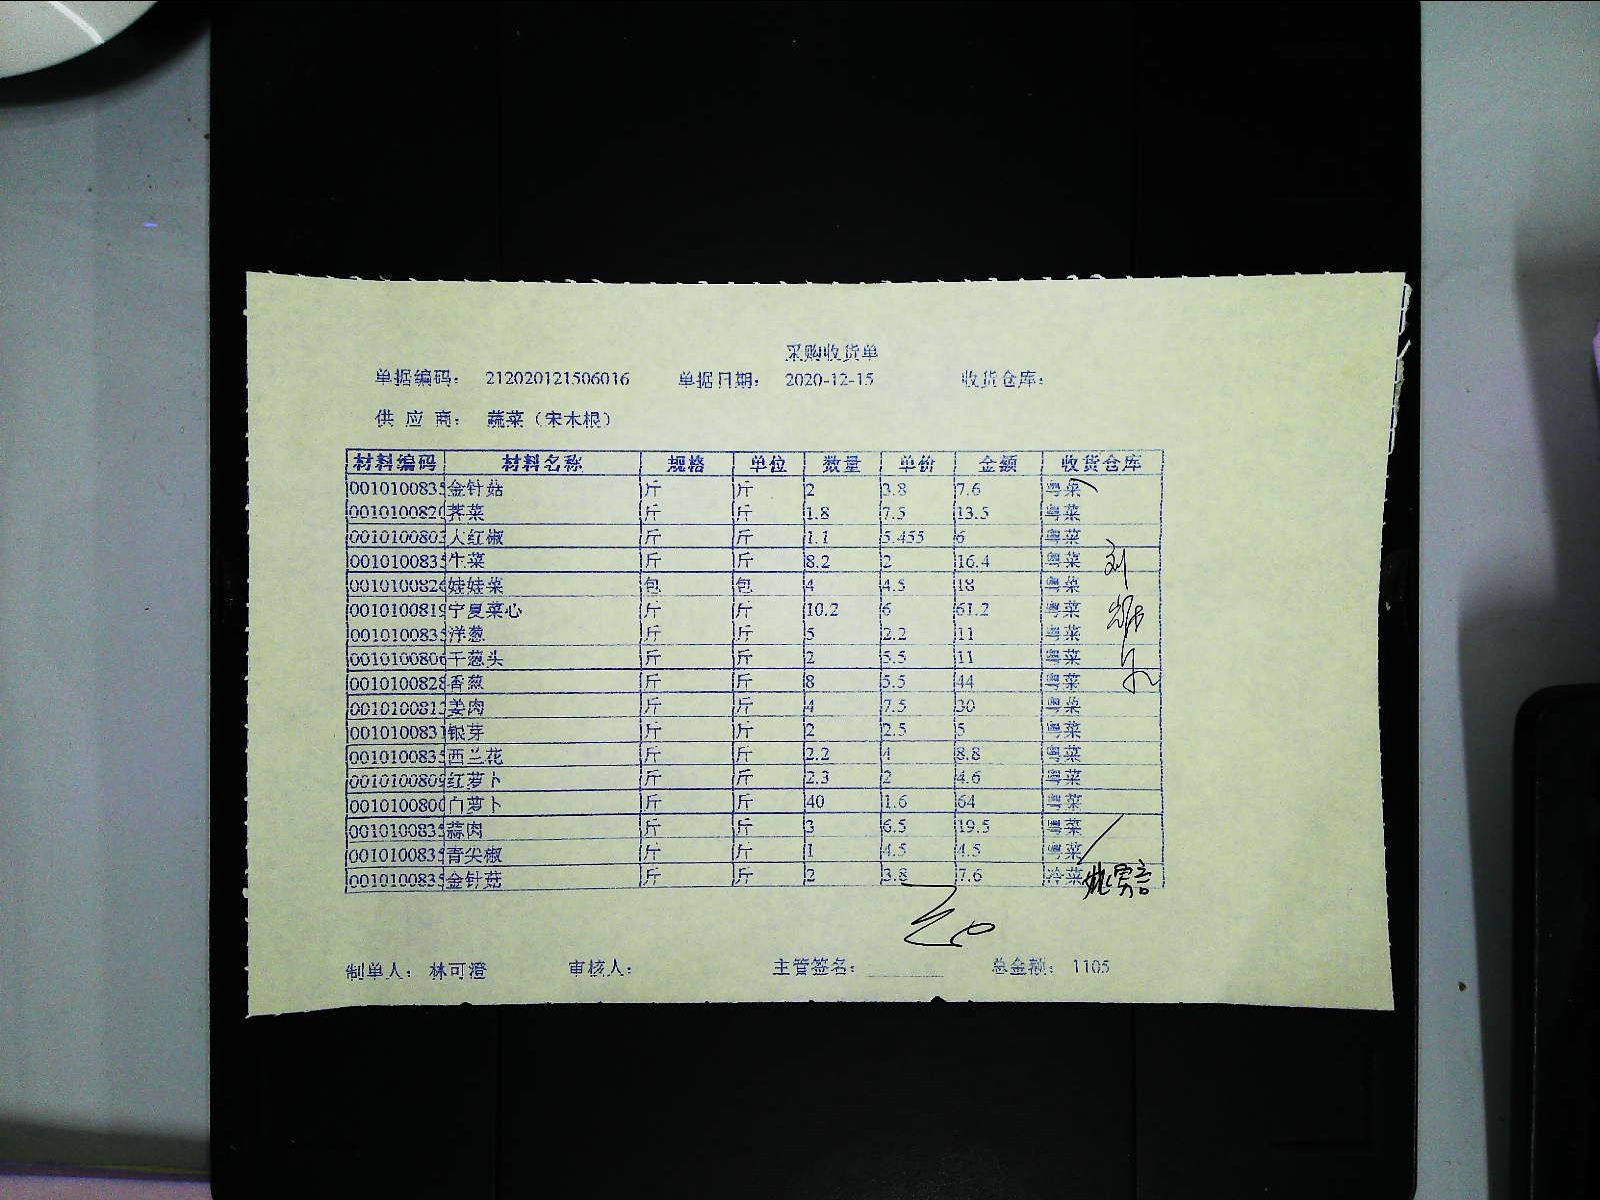 采购收货单
单据编码： 212020121506016 单据日期： 2020-12-15 收货仓库：
供 应 商： 蔬菜（宋木根）
材料编码 材料名称 规格 单位 数量 单价 金额 收货仓库
0010100835 金针菇 斤 斤 2 3.8 7.6 粤菜
0010100820 荠菜 斤 斤 1.8 7.5 13.5 粤菜
0010100803 大红椒 斤 斤 1.1 5.455 6 粤菜
0010100835 牛菜 斤 斤 8.2 2 16.4 粤菜
0010100826 娃娃菜 包 包 4 4.5 18 粤菜
0010100819 宁夏菜心 斤 斤 10.2 6 61.2 粤菜
0010100835 洋葱 斤 斤 5 2.2 11 粤菜
0010100806 干葱头 斤 斤 2 5.5 11 粤菜
0010100828 香葱 斤 斤 8 5.5 44 粤菜
001010081 姜肉 斤 斤 4 7.5 30 粤菜
0010100831 银芽 斤 斤 2 2.5 5 粤菜
0010100835 西兰花 斤 斤 2.2 4 8.8 粤菜
0010100809 红萝卜 斤 斤 2.3 2 4.6 粤菜
0010100800 白萝卜 斤 斤 40 1.6 64 粤菜
0010100835 蒜肉 斤 斤 3 6.5 19.5 粤菜
0010100835 青尖椒 斤 斤 1 4.5 4.5 粤菜
0010100835 金针菇 斤 斤 2 3.8 7.6 冷菜
制单人： 林可澄 审核人： 主管签名： 总金额： 1105